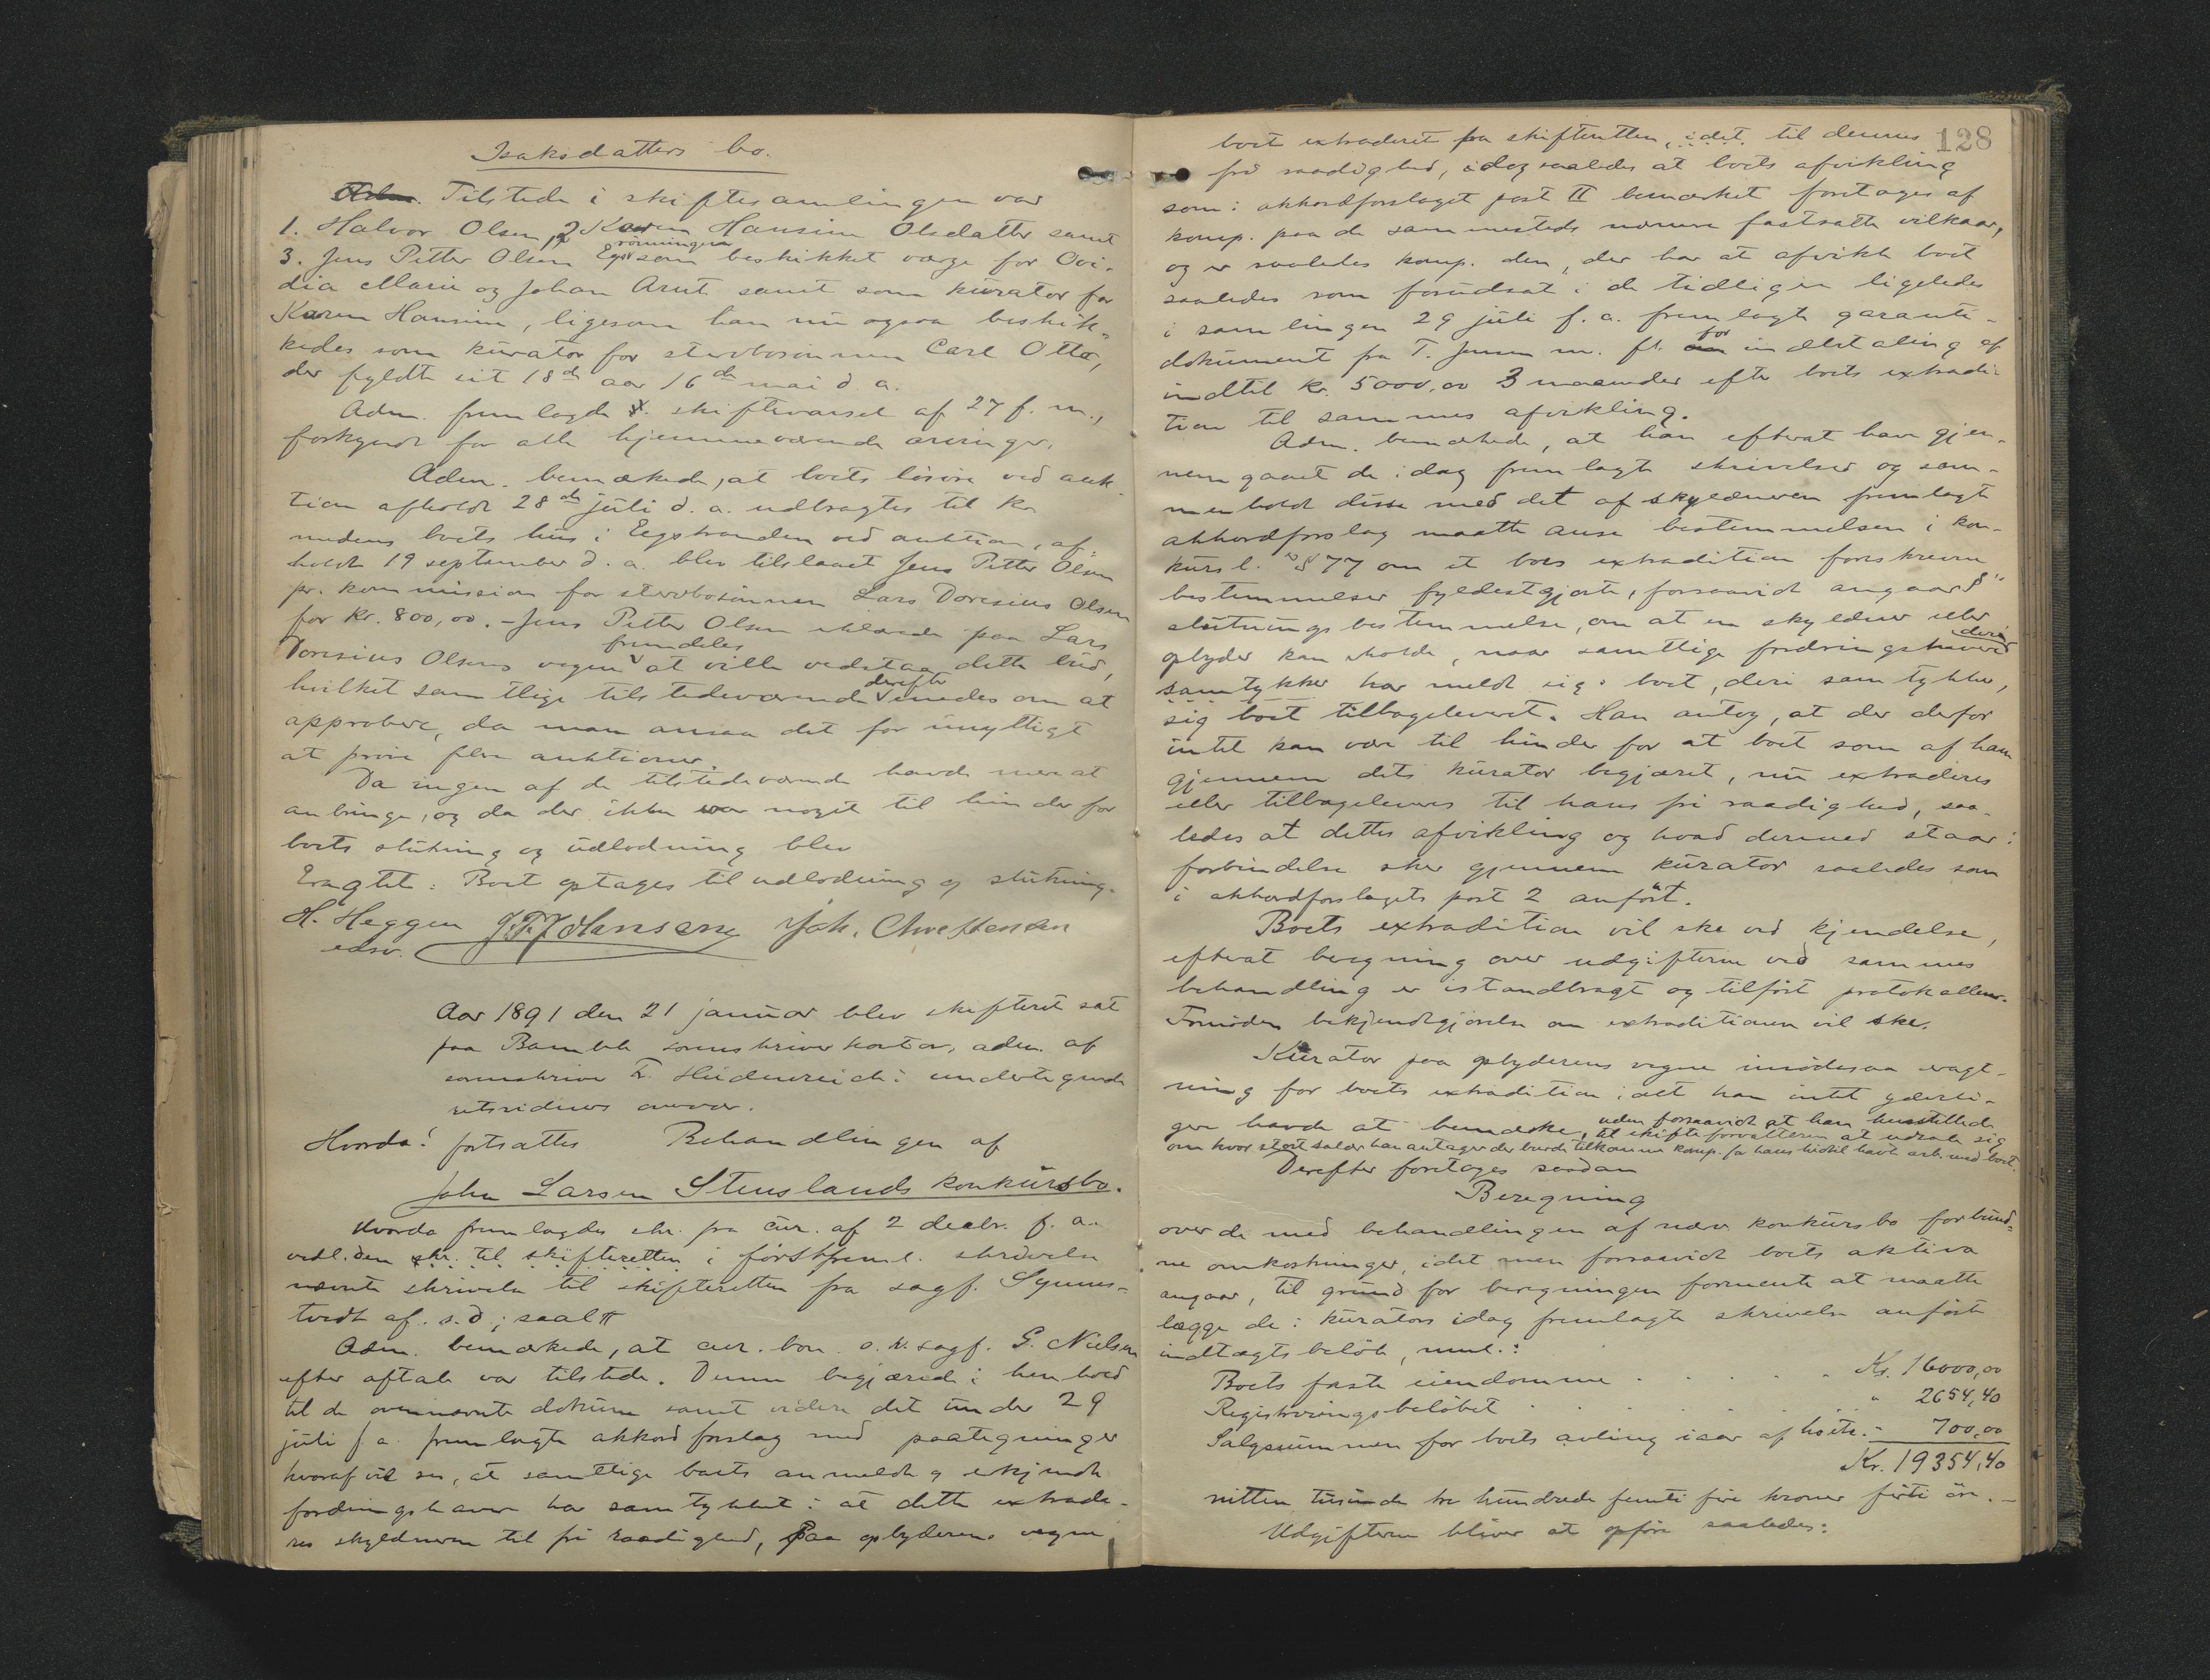 Isaksdatters bo.
Tilstede i skiftesamlingen var
1. Halvor Olsen, 2 Karen Hansine Olsdatter samt
3. Jens Petter Olsen som beskikket værge for Ovi-
dia Marie og Johan Arnt samt som kurator for
Karen Hansine, ligesom han nu ogsaa beskik-
kedes som kurator for stervbosønnen Carl Otto,
der fyldte sit 18de aar 16de mai d. a.
Adm. fremlagde skiftevarsel af 27 f. m.,
forkyndt for alle hjemmeværende arvinger.
Adm. bemærkede, at boets løsøre ved auk-
tion afholdt 28de juli d. a. udbragtes til Kr
medens boets hus i Eegstranden ved auktion, af-
holdt 19 september d. a. blev tilslaaet Jens Petter Olsen
pr. kommission for stervbosønnen Lars Doresius Olsen
for kr. 800,00. – Jens Petter Olsen erklærede paa Lars
Doresius Olsens vegne fremdeles at ville vedstaa dette bud,
hvilket samtlige tilstedeværende derefter enedes om at
approbere, da man ansaa det for unyttigt
at prøve flere auktioner.
Da ingen af de tilstedeværende havde mere at
anbringe, og da der ikke var noget til hinder for
boets slutning og udlodning blev
Eragtet: Boet optages til udlodning og slutning.
H. Heggen J.T.J. Hansen Joh. Christensen
edsv.
Aar 1891 den 21 januar blev skifteret sat
paa Bamble sorenskriverkontor, adm. af
sorenskriver F. Heidenreich i undertegnede
retsvidners overvær.
Hvorda! fortsattes Behandlingen af
John Larsen Stenslands konkursbo.
Hvorda fremlagdes skr. fra cur. af 2 decbr. f. a.
vedl. den skr. til skifteretten i førstfreml. skrivelse
nævnte skrivelse til skifteretten fra sagf. Synnes-
tvedt af s. d.; saal
Adm. bemærkede, at cur. bon. o. r. sagf. G. Nielsen
efter aftale var tilstede. Denne begjærede i henhold
til de ovennævnte dokum samt videre det under 29
juli f. a. fremlagte akkordforslag med paategninger
hvoraf vil ses, at samtlige boets anmeldte og erkjendte
fordringshavere har samtykket i at dette extrade-
res skyldneren til fri raadighed, paa opbyderens vegne
128
boet extraderet fra skifteretten, idet til dennes
fri raadighed, idag saaledes at boets afvikling
som i akkordforslaget post II bemærket foretages af
komp. paa de sammesteds nærmere fastsatte vilkaar,
og er saaledes komp. den, der har at afvikle boet
saaledes som forudsat i de tidligere ligeledes
i samlingen 29 juli f. a. fremlagte garanti-
dokument fra T. Jensen m. fl. for indbetaling af
indtil kr. 5000,00 3 maaneder efter boets extradi-
tion til sammes afvikling.
Adm. bemærkede, at han efterat have gjen-
nemgaaet de idag fremlagte skrivelser og sam-
menholdt disse med det af skyldneren fremlagte
akkordforslag maatte anse bestemmelsen i kon-
kursl. § 77 om et bos extradition foreskrevne
bestemmelser fyldestgjorte, forsaavidt angaar §
slutningsbestemmelse, om at en skyldner eller
opbyder kan erholde, naar samtlige fordringshavere deri
samtykker har meldt sig i boet, deri samtykker,
sig boet tilbageleveret. Han antog, at der derfor
intet kan være til hinder for at boet som af ham
gjennem dets kurator begjæret, nu extraderes
eller tilbageleveres til hans fri raadighed, saa-
ledes at dettes afvikling og hvad dermed staar i
forbindelse sker gjennem kurator saaledes som
i akkordforslagets post 2 anført.
Boets extradition vil ske ved kjendelse,
efterat beregning over udgifterne ved sammes
behandling er istandbragt og tilført protokollen.
Fornøden bekjendtgjørelse om extraditionen vil ske.
Kurator paa opbyderens vegne imødesaa eragt-
ning for boets extradition idet han intet yderli-
gere havde at bemærke, uden forsaavidt at han henstillede
til skifteforvalteren at udtale sig
om hvor stort salær han antager der burde tilkomme komp. for hans hidtil havte arb. med boet.
Derefter foretages saadan
Beregning
over de med behandlingen af nævnte konkursbo forbund-
ne omkostninger, idet men forsaavidt boets aktiva
angaar, til grund for beregningen formente at maatte
lægge de i kurators idag fremlagte skrivelse anførte
indtægtsbeløb, nml.:
Boets faste eiendomme . . . . . Kr. 16000,00
Registreringsbeløbet . . . . . . " 2654,40
Salgssummen for boets avling især af høite. - 700,00
Kr. 19354,40
nitten tusinde tre hundrede femti fire kroner firti øre. –
Udgifterne bliver at opføre saaledes: